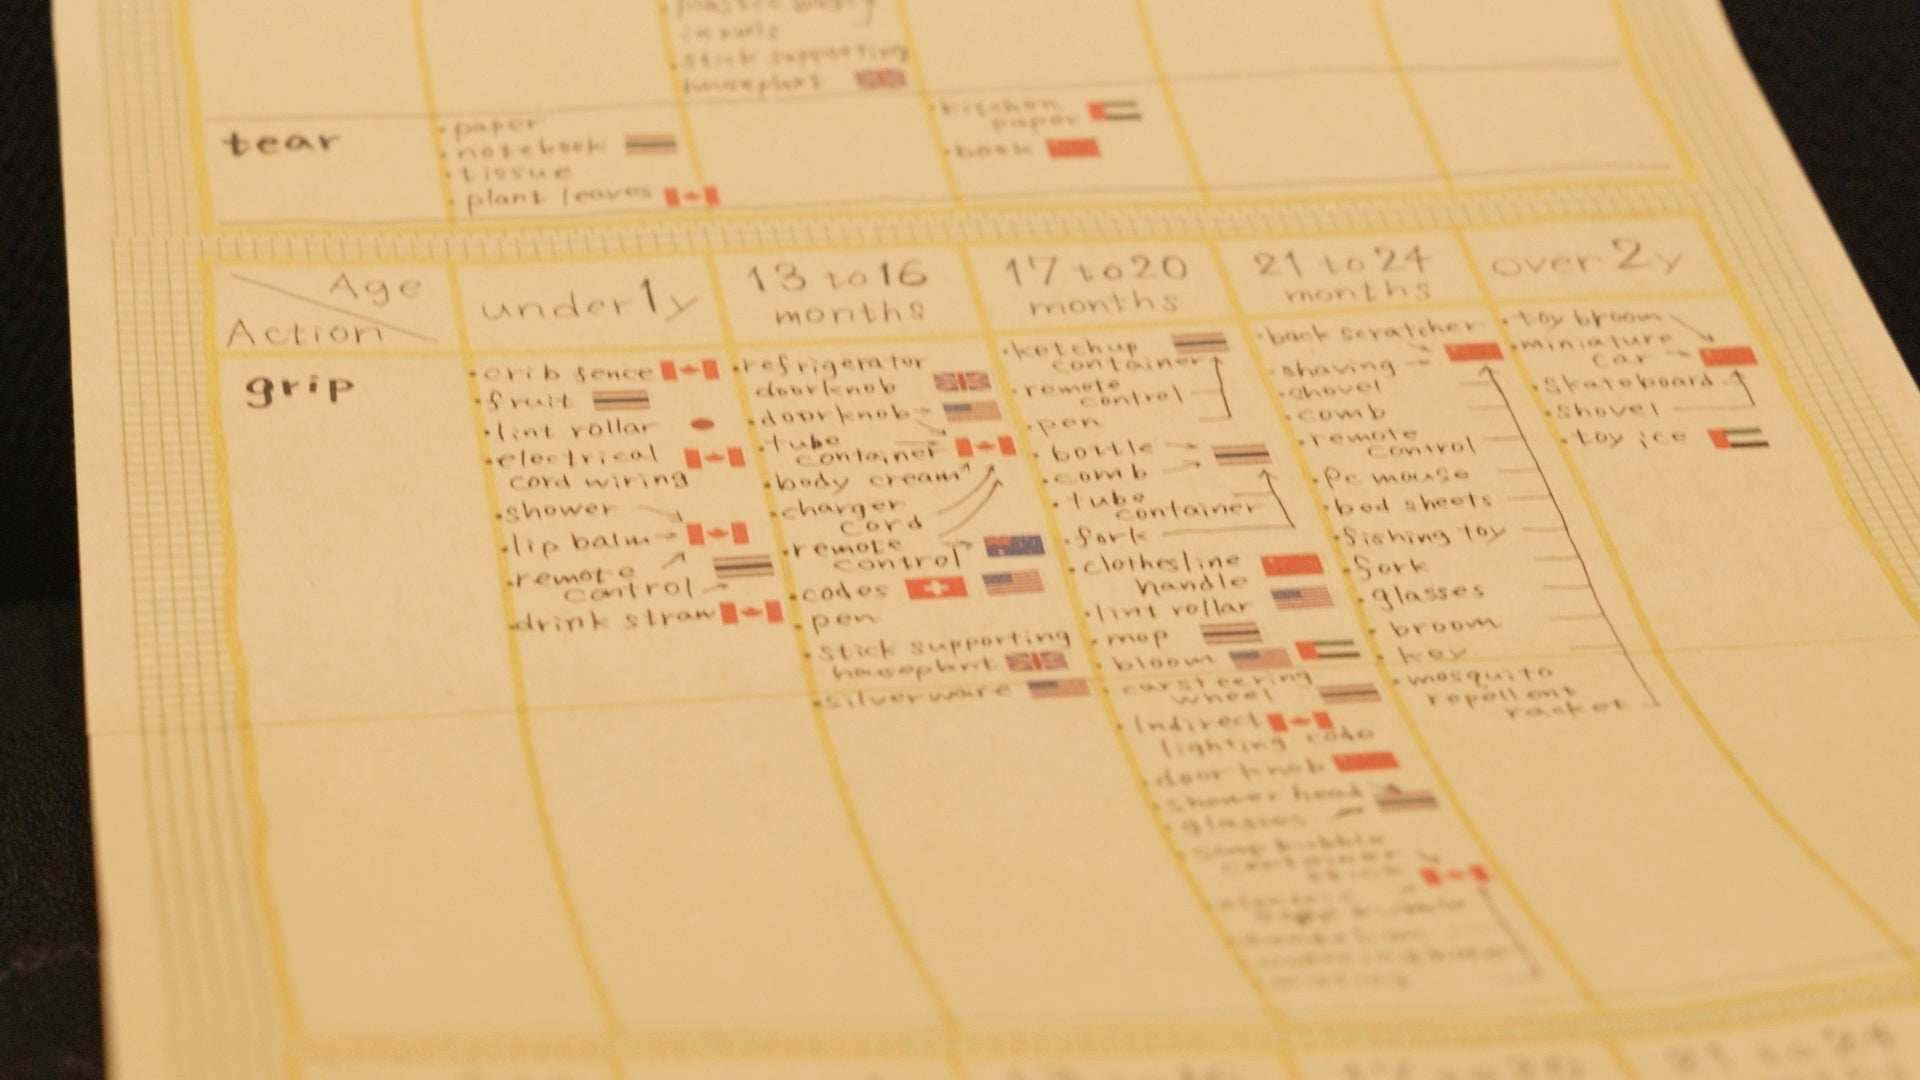 in rolls
stick supporting
houseplant
tear
・paper
・notebook
・tissue
・plant leaves
・kitchen
paper
・book
Age
Action
under 1y
13 to 16
months
17 to 20
months
21 to 24
months
over 2y
grip
・crib fence
・fruit
・lint rollar
・electrical
cord wiring
・shower
・lip balm
・remote
control
・drink straw
・refrigerator
doorknob
・doorknob
・tube
container
・body cream
・charger
cord
・remote
control
・codes
・pen
・stick supporting
houseplant
・silverware
・ketchup
container
・remote
control
・pen
・bottle
・comb
・tube
container
・fork
・clothesline
handle
・lint rollar
・mop
・bloom
・car steering
wheel
・Indirect
lighting code
・door knob
・shower head
・glasses
・soap bubble
container
stick
・back scratcher
・shaving
・shovel
・comb
・remote
control
・pc mouse
・bed sheets
・fishing toy
・fork
・glasses
・broom
・key
・mosquito
repellent
racket
・toy broom
・miniature
car
・skateboard
・shovel
・toy ice